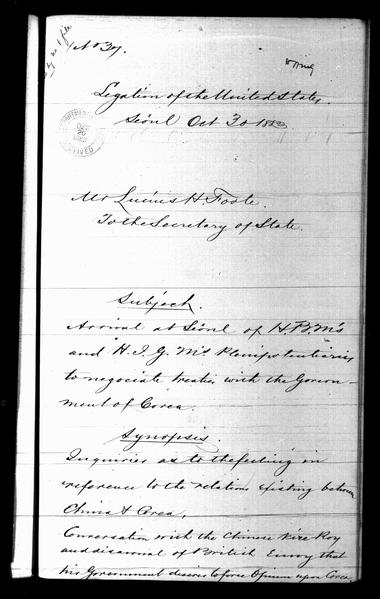 No 37.
Legation of the United States,
Seoul Oct 30 1883.
Mr Lucius H. Foote.
To the Secretary of State.
Subject.
Arrival at Seoul of H.B.M's
and H.I.G.M's Plenipotentiaries
to negociate treaties with the Govern-
ment of Corea.
Synopsis
Inquiries as to the feeling in
reference to the relations existing between
China & Corea,
Conversation with the Chinese Vice Roy
and disavowal of British Envoy that
his Government desires to force Opium upon Corea.